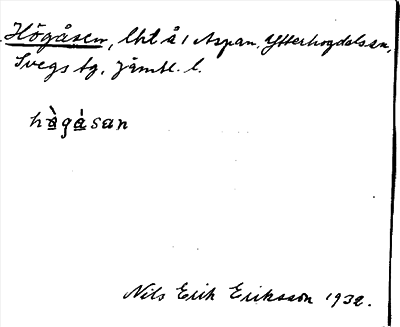 Högåsen, lht å 1 Aspan, Ytterhogdals sn,
Svegs tg, Jämtl. l.
hàgásan
Nils Erik Eriksson 1932.